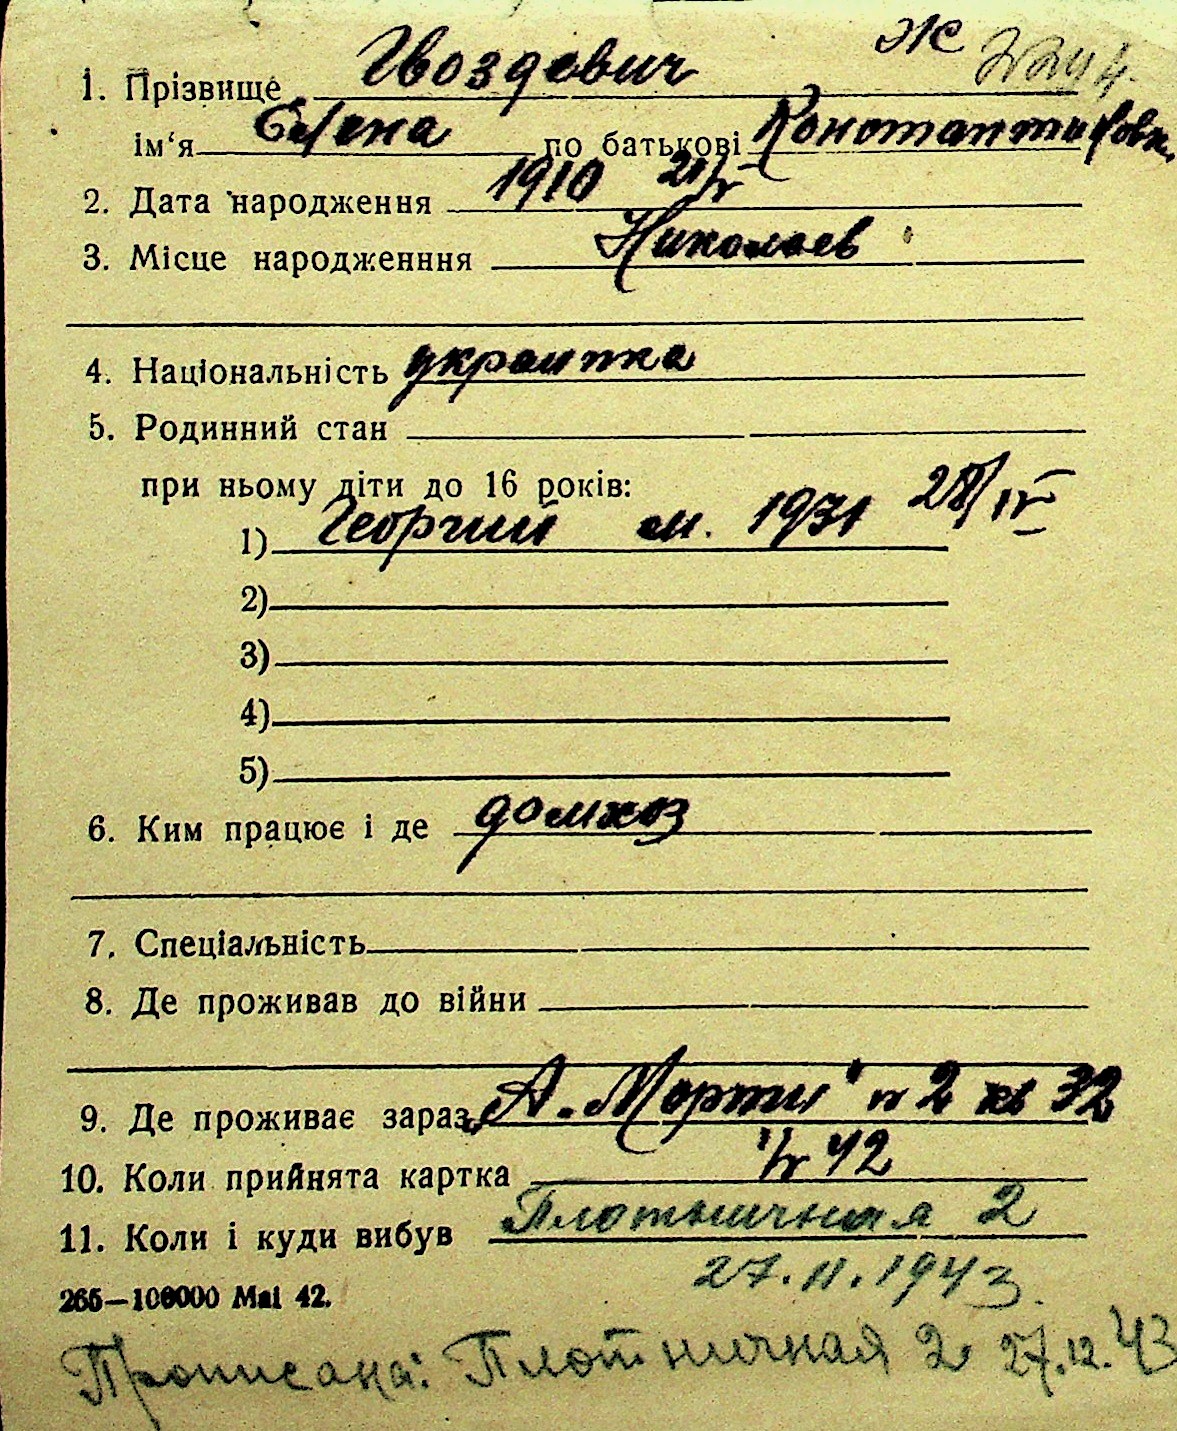 Ж
1. Прізвище Гвоздевич
ім‘я Елена по батькові Константиновн.
2. Дата народження 1910 21/V
3. Місце народженння Николаев
4. Національність украинка
5. Родинний стан
при ньому діти до 16 років:
1) Георгий м. 1931 28/IV
2)
3)
4)
5)
6. Ким працює і де домхоз
7. Спеціальність
8. Де проживав до війни
9. Де проживає зараз А.Морти 2 кв 32
10. Коли прийнята картка 42
11. Коли і куди вибув Плотничная 2
27.11.1943
265—100000 Mai 42.
Прописана: Плотничная 2 27.12.43